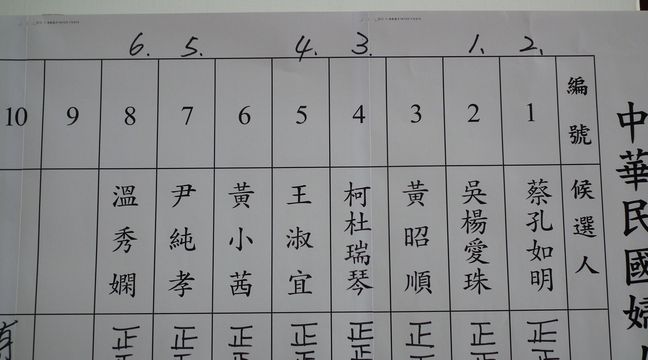 中華民國婦
2. 1. 3. 4. 5. 6.
編號 1 2 3 4 5 6 7 8 9 10
候選人
蔡孔如明
吳楊愛珠
黃昭順
柯杜瑞琴
王淑宜
黃小茜
尹純孝
溫秀嫻
正 正 正 正 正 正 正 正